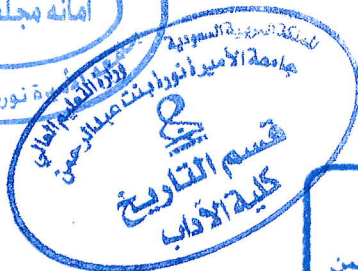 أمانة مجلـ
المملكة العربية السعودية
وزارة التعليم العالي
جامعة الأميرة نورة بنت عبدالرحمن
قسم التاريخ
كلية الآداب